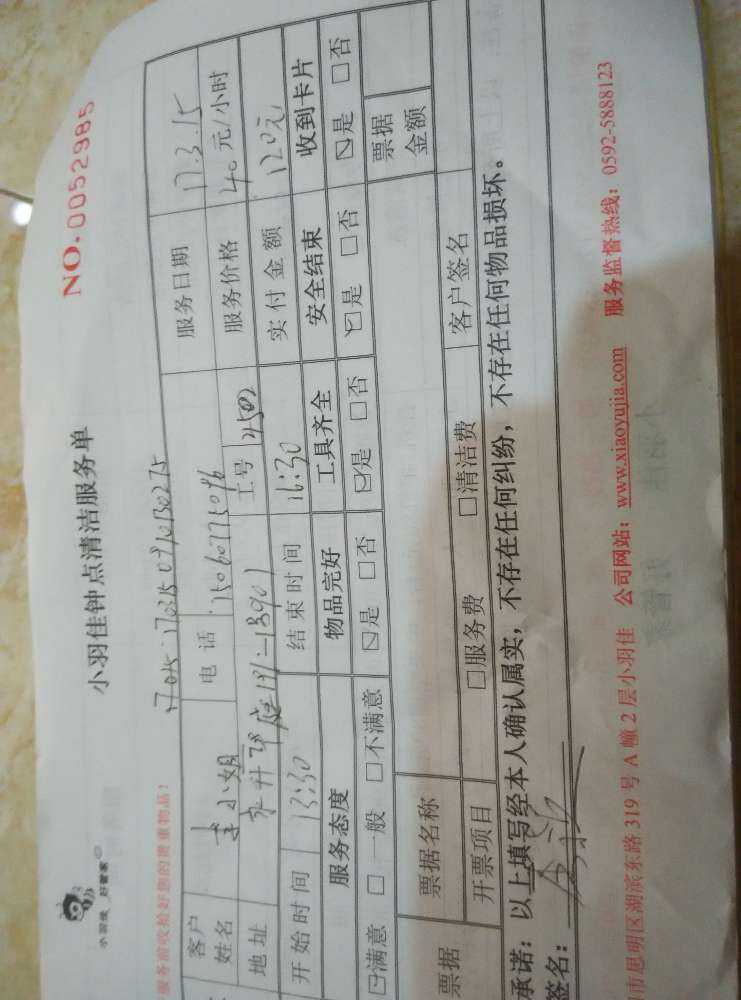 小羽佳 好管家
小羽佳钟点清洁服务单
NO.0052985
服务前收拾好您的贵重物品!
客户姓名 李小姐 电话 15060775096 服务日期 17.3.15
地址 工号 4502 服务价格 40元/小时
开始时间 13:30 结束时间 16:30 实付金额 120元
服务态度 物品完好 工具齐全 安全结束 收到卡片
☑满意 □一般 □不满意 ☑是 □否 ☑是 □否 ☑是 □否 ☑是 □否
票据 票据名称 票据金额
开票项目 □服务费 □清洁费 客户签名
承诺:以上填写经本人确认属实,不存在任何纠纷,不存在任何物品损坏。
签名:
市思明区湖滨东路 319 号 A 幢 2 层小羽佳 公司网站:www.xiaoyujia.com 服务监督热线:0592-5888123